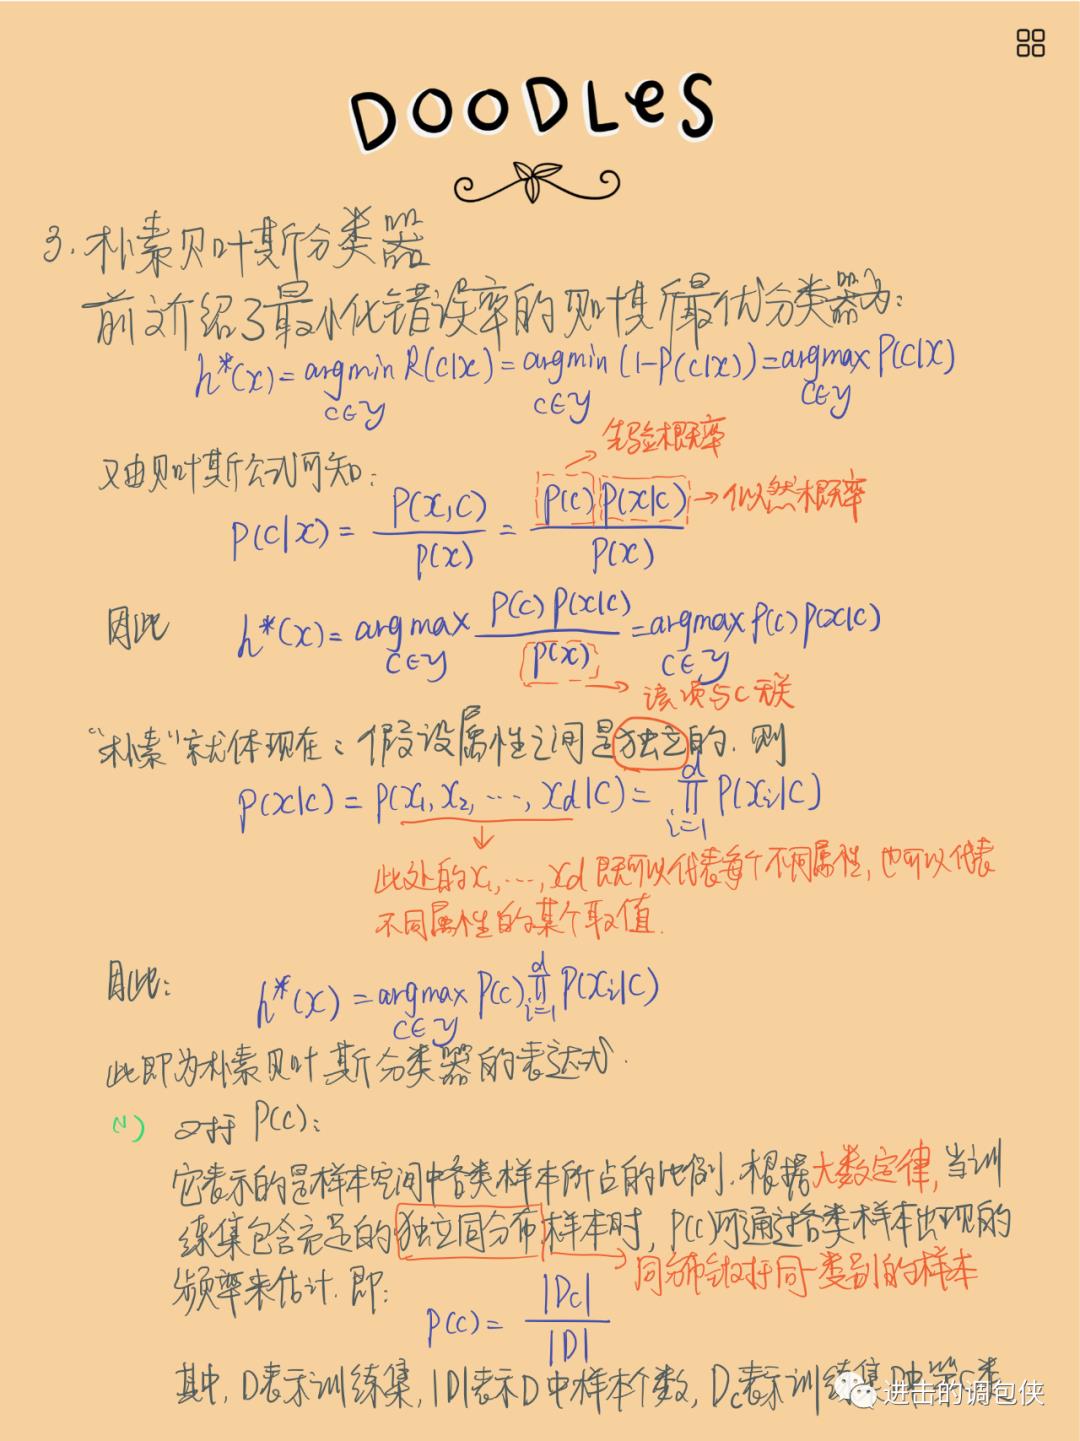 DOODLES
3. 朴素贝叶斯分类器
前文介绍了最小化错误率的贝叶斯最优分类器为:
h*(x) = argmin R(c|x) = argmin (1-P(c|x)) = argmax P(c|x)
c∈Y c∈Y c∈Y
先验概率
又由贝叶斯公式可知:
P(c|x) = P(x,c)/P(x) = P(c) P(x|c)/P(x) → 似然概率
因此 h*(x) = argmax P(c) P(x|c)/P(x) = argmax P(c) P(x|c)
c∈Y c∈Y
该项与C无关
“朴素”就体现在: 假设属性之间是独立的. 则
P(x|c) = P(x₁, x₂, ···, xd|c) = ∏ᵈᵢ₌₁ P(xᵢ|c)
此处的x₁, ···, xd 既可以代表每个不同属性, 也可以代表
不同属性的某个取值.
因此: h*(x) = argmax P(c) ∏ᵈᵢ₌₁ P(xᵢ|c)
c∈Y
此即为朴素贝叶斯分类器的表达式.
(1) 对于 P(c):
它表示的是样本空间中各类样本所占的比例. 根据大数定律, 当训
练集包含充足的独立同分布样本时, P(c)可通过各类样本出现的
频率来估计. 即: 同分布针对于同一类别的样本
P(c) = |Dc|/|D|
其中, D表示训练集, |D|表示D中样本个数, Dc表示训练集D中第C类
进击的调包侠